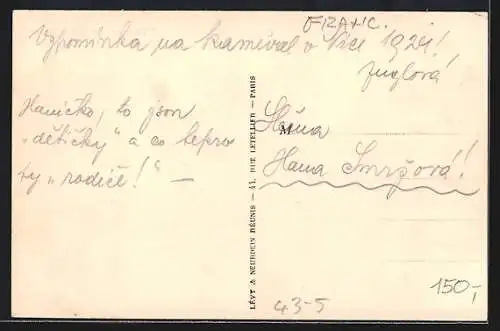 FRANC.
Vzpomínka na karneval v Nice 1924!
Haničko, to jsou
"dětičky" a co teprv
ty "rodiče!" —
LÉVY & NEURDEIN RÉUNIS — 44, RUE LETELLIER — PARIS
Slečna
M
Hana Smržová!
150,-
43-5